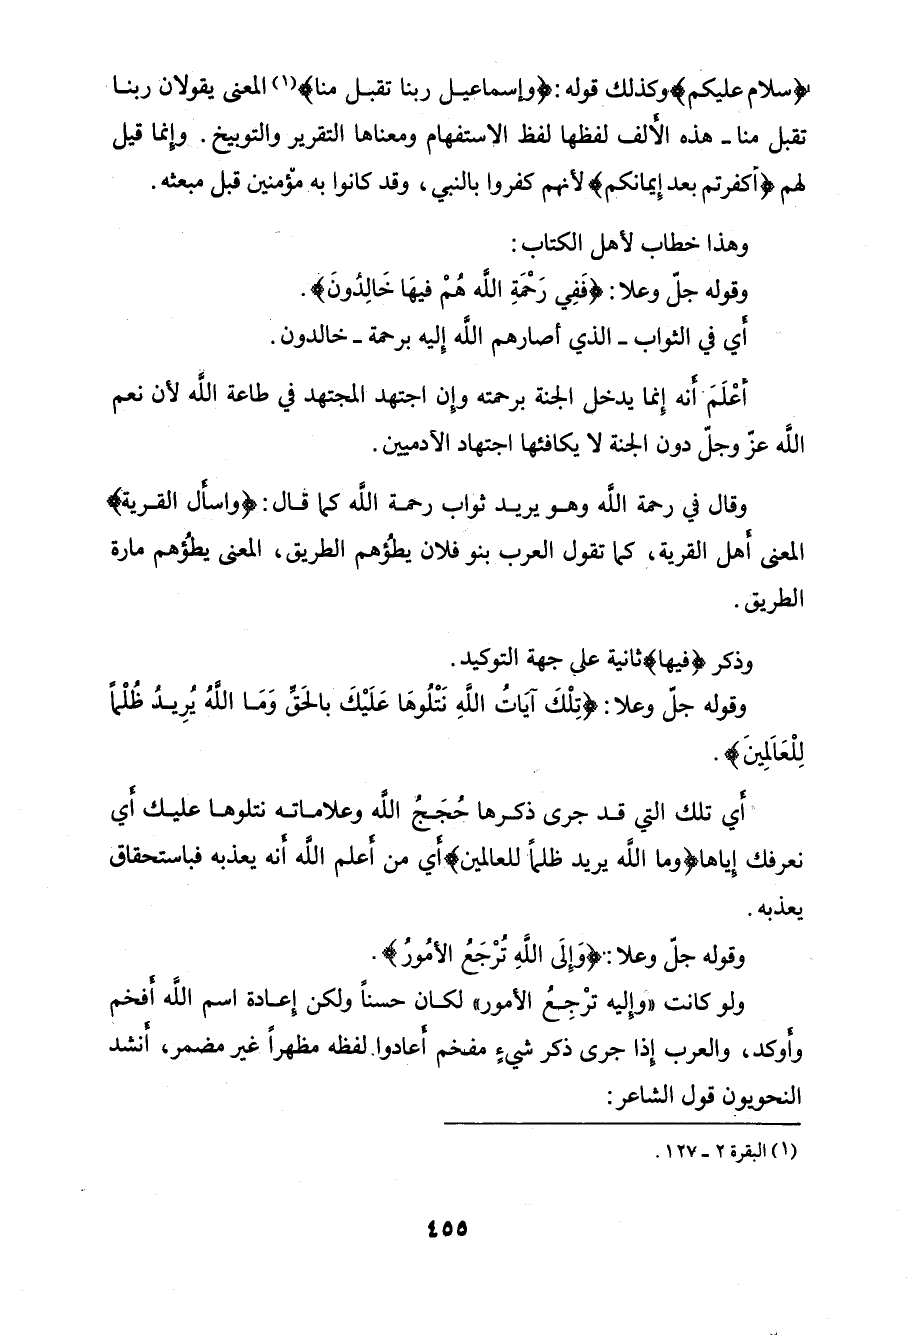 ﴿سلام عليكم﴾وكذلك قوله: ﴿وإسماعيل ربنا تقبل منا﴾(١) المعنى يقولان ربنا
تقبل منا ـ هذه الألف لفظها لفظ الاستفهام ومعناها التقرير والتوبيخ. وإنما قيل
لهم ﴿أكفرتم بعد إيمانكم﴾ لأنهم كفروا بالنبي، وقد كانوا به مؤمنين قبل مبعثه.
وهذا خطاب لأهل الكتاب:
وقوله جلّ وعلا: ﴿فَفِي رَحْمَةِ اللَّه هُمْ فيهَا خَالِدُونَ﴾.
أي في الثواب ـ الذي أصارهم اللَّه إليه برحمة ـ خالدون.
أَعْلَمَ أنه إنما يدخل الجنة برحمته وإن اجتهد المجتهد في طاعة اللَّه لأن نعم
اللَّه عزّ وجلّ دون الجنة لا يكافئها اجتهاد الآدميين.
وقال في رحمة اللَّه وهو يريد ثواب رحمة اللَّه كما قال: ﴿واسأل القرية﴾
المعنى أهل القرية، كما تقول العرب بنو فلان يطؤهم الطريق، المعنى يطؤهم مارة
الطريق.
وذكر ﴿فيها﴾ثانية على جهة التوكيد.
وقوله جلّ وعلا: ﴿تِلْكَ آيَاتُ اللَّهِ نَتْلُوهَا عَلَيْكَ بالحَقِّ وَمَا اللَّهُ يُرِيدُ ظُلْماً
لِلْعَالَمِينَ﴾.
أي تلك التي قد جرى ذكرها حُجَجُ اللَّه وعلاماته نتلوها عليك أي
نعرفك إياها﴿وما اللَّه يريد ظلماً للعالمين﴾أي من أعلم اللَّه أنه يعذبه فباستحقاق
يعذبه.
وقوله جلّ وعلا: ﴿وَإِلَى اللَّهِ تُرْجَعُ الأمُورُ﴾.
ولو كانت «وإليه ترْجِعُ الأمور» لكان حسناً ولكن إعادة اسم اللَّه أفخم
وأوكد، والعرب إذا جرى ذكر شيءٍ مفخم أعادوا لفظه مظهراً غير مضمر، أنشد
النحويون قول الشاعر:
(١) البقرة ٢ ـ ١٢٧.
٤٥٥